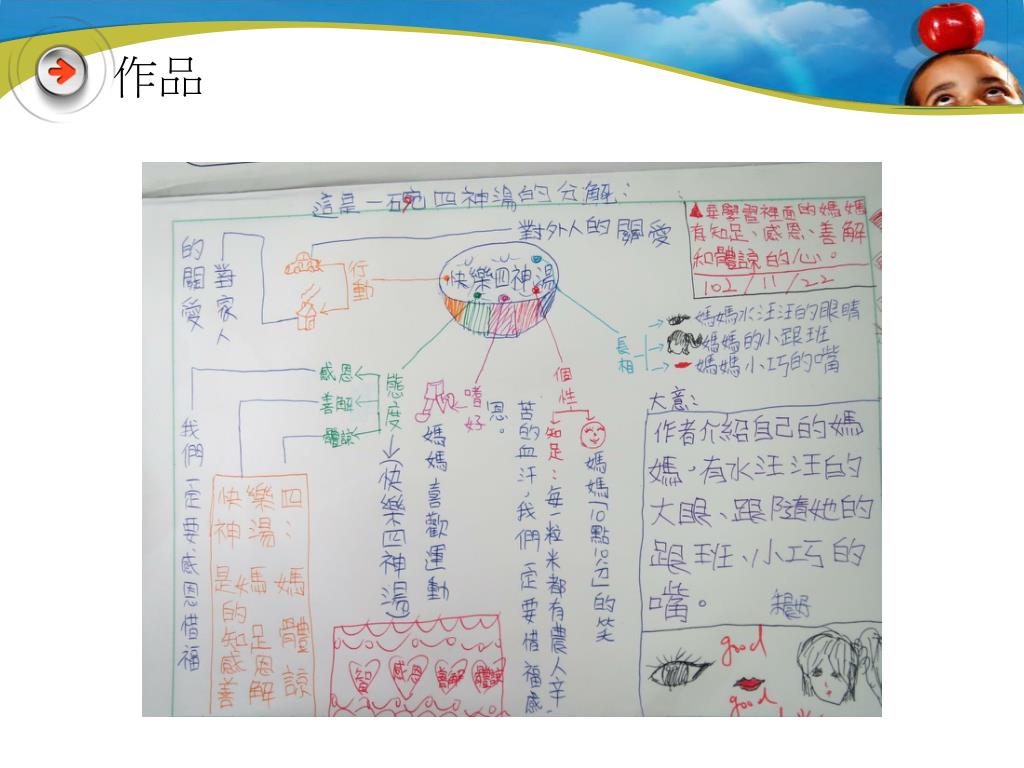 作品
這是一碗四神湯的分解：
▲在學習裡面的媽媽
有知足、感恩、善解
和體諒的心。
102/11/22
對外人的關愛
對家人
的關愛
行動
快樂四神湯
長相
媽媽水汪汪的眼睛
媽媽的小跟班
媽媽小巧的嘴
態度→(快樂四神湯)
感恩
善解
體諒
我們一定要感恩惜福
嗜好
媽媽喜歡運動
個性
知足：每一粒米都有農人辛
苦的血汗，我們一定要惜福感
恩。
媽媽「10點10分」的笑
快樂四
神湯：
是媽媽
的
知足
感恩
善解
體諒
知
感恩
善解
體諒
大意：
作者介紹自己的媽
媽，有水汪汪的
大眼、跟隨她的
跟班、小巧的
嘴。
good
good